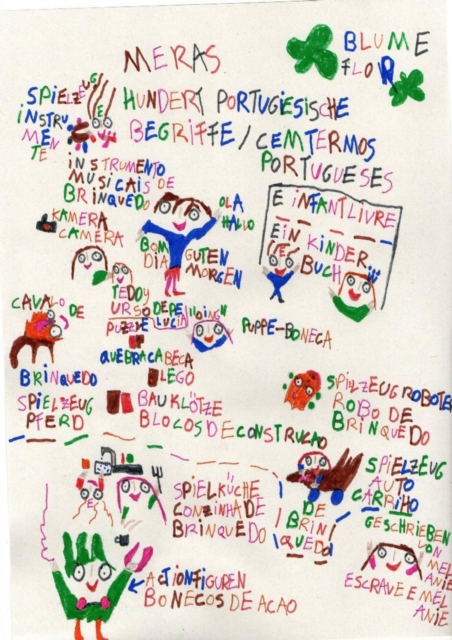 MERAS
BLUME
FLOR
HUNDERT PORTUGIESISCHE
BEGRIFFE / CEMTERMOS
PORTUGUESES
SPIELZEUG
INSTRU
MEN
TE
INSTRUMENTO
MUSICAIS DE
BRINQUEDO
KAMERA
CAMERA
OLA
HALLO
BOM
DIA
GUTEN
MORGEN
E INFANTLIVRE
EIN KINDER
BUCH
TEDDY
URSO DE PELUCIA
PUZZLE
QUEBRACABECA
LEGO
PUPPE-BONECA
CAVALO DE
BRINQUEDO
SPIELZEUG
PFERD
BAUKLÖTZE
BLOCOS DE CONSTRUCAO
SPIELZEUG ROBOTER
ROBO DE
BRINQUEDO
SPIELKÜCHE
CONZINHA DE
BRINQUEDO
SPIELZEUG
AUTO
CARRIHO
DE
BRIN
QUEDO
GESCHRIEBEN
VON
MEL
ANIE
ESCRAVE E MEL
ANIE
ACTIONFIGUREN
BONECOS DE ACAO